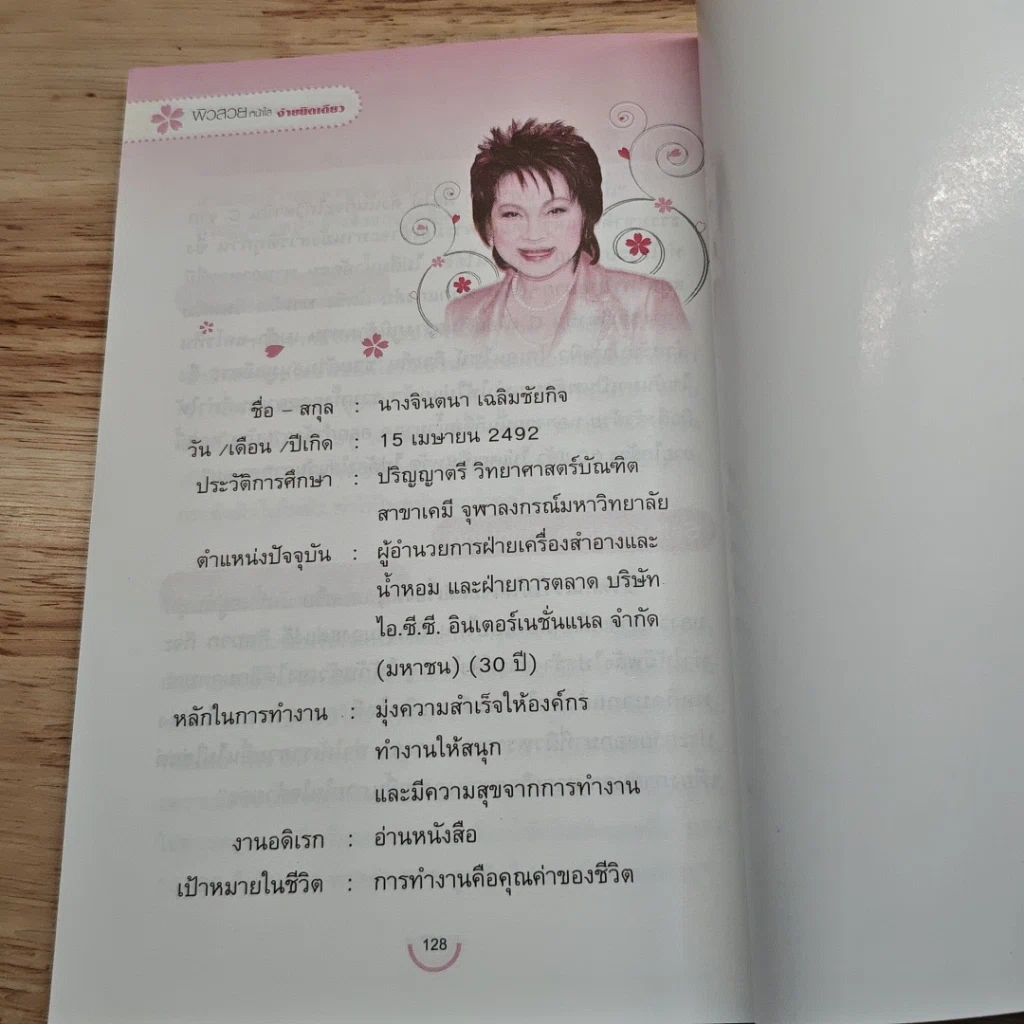 ผิวสวย หน้าใส ง่ายนิดเดียว
ชื่อ – สกุล : นางจินตนา เฉลิมชัยกิจ
วัน /เดือน /ปีเกิด : 15 เมษายน 2492
ประวัติการศึกษา : ปริญญาตรี วิทยาศาสตร์บัณฑิต
สาขาเคมี จุฬาลงกรณ์มหาวิทยาลัย
ตำแหน่งปัจจุบัน : ผู้อำนวยการฝ่ายเครื่องสำอางและ
น้ำหอม และฝ่ายการตลาด บริษัท
ไอ.ซี.ซี. อินเตอร์เนชั่นแนล จำกัด
(มหาชน) (30 ปี)
หลักในการทำงาน : มุ่งความสำเร็จให้องค์กร
ทำงานให้สนุก
และมีความสุขจากการทำงาน
งานอดิเรก : อ่านหนังสือ
เป้าหมายในชีวิต : การทำงานคือคุณค่าของชีวิต
128